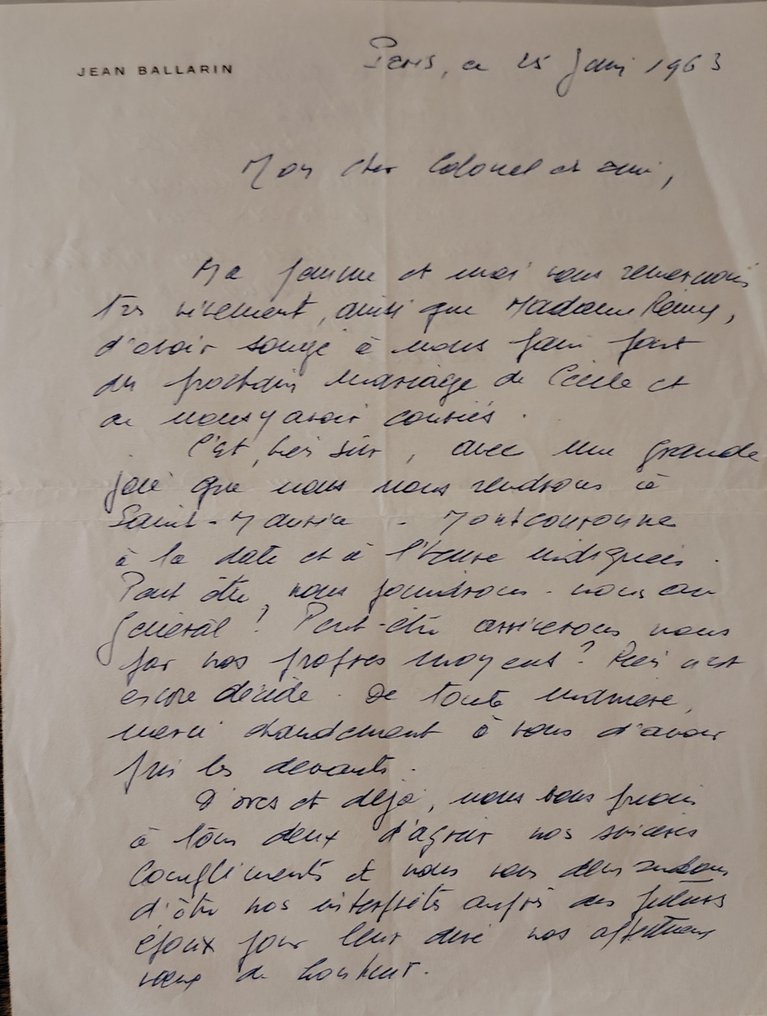 JEAN BALLARIN
Paris, ce 25 Juin 1963
Mon cher Colonel et ami,
Ma femme et moi vous remercions
très vivement, ainsi que Madame Rémy,
d'avoir songé à nous faire part
du prochain mariage de Cécile et
de nous y avoir conviés.
C'est, bien sûr, avec une grande
joie que nous nous rendrons à
Saint-Maurice - Montcouronne
à la date et à l'heure indiquées.
Peut être nous joindrons-nous au
Général ? Peut-être arriverons nous
par nos propres moyens ? Rien n'est
encore décidé. De toute manière,
merci chaudement à vous d'avoir
pris les devants.
D'ores et déjà, nous vous prions
à tous deux d'agréer nos sincères
compliments et nous vous demandons
d'être nos interprètes auprès des futurs
époux pour leur dire nos affectueux
vœux de bonheur.